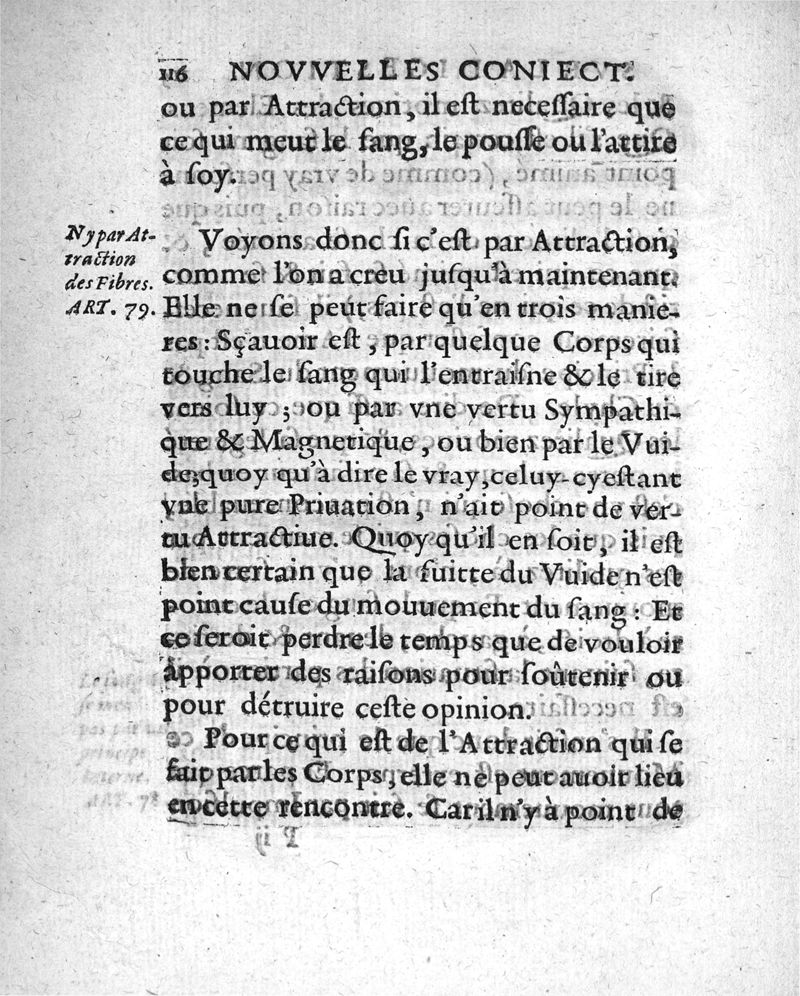 116 NOVVELLES CONIECT.
ou par Attraction, il est necessaire que
ce qui meut le sang, le pousse ou l'attire
à soy.
Ny par At-
traction
des Fibres.
ART. 79.
Voyons donc si c'est par Attraction,
comme l'on a creu jusqu'à maintenant.
Elle ne se peut faire qu'en trois manie-
res: Sçauoir est, par quelque Corps qui
touche le sang qui l'entraisne & le tire
vers luy; ou par vne vertu Sympathi-
que & Magnetique, ou bien par le Vui-
de; quoy qu'à dire le vray, celuy-cy estant
vne pure Priuation, n'ait point de ver-
tu Attractiue. Quoy qu'il en soit, il est
bien certain que la fuitte du Vuide n'est
point cause du mouuement du sang: Et
ce seroit perdre le temps que de vouloir
apporter des raisons pour soûtenir ou
pour détruire ceste opinion.
Pour ce qui est de l'Attraction qui se
fait par les Corps, elle ne peut auoir lieu
en cette rencontre. Car il n'y à point de